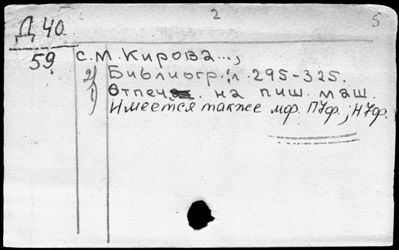 2
5
Д 40
59
с.М.Кирова...,
2) Библиогр.: л. 295-325.
1) Отпеч. на пиш. маш.
Имеется также мф. ПУф.; НУф.